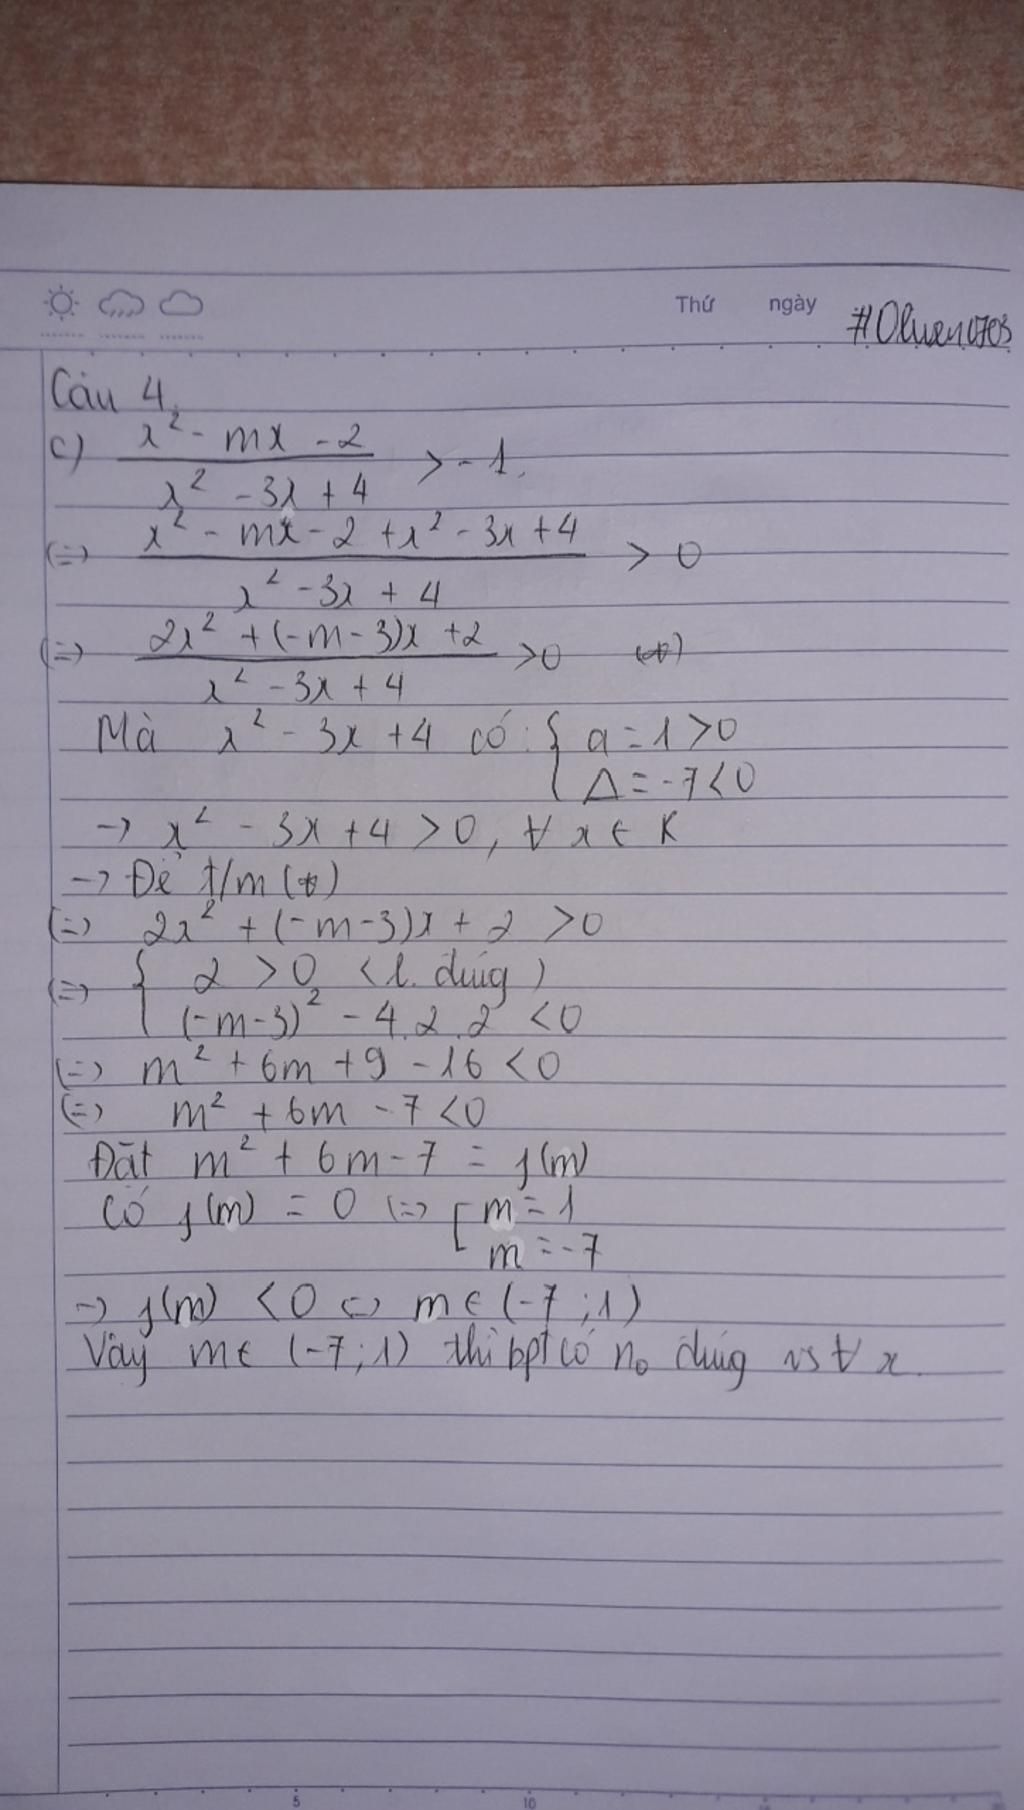 Thứ ngày
Câu 4.
c) \frac{x² - mx - 2}{x² - 3x + 4} > -1.
(=) \frac{x² - mx - 2 + x² - 3x + 4}{x² - 3x + 4} > 0
(=) \frac{2x² + (-m-3)x + 2}{x² - 3x + 4} > 0 (*)
Mà x² - 3x + 4 có : { a = 1 > 0
Δ = -7 < 0
→ x² - 3x + 4 > 0, ∀ x ∈ R
→ Để t/m (*)
(=) 2x² + (-m-3)x + 2 > 0
(=) { 2 > 0 (l. đúng)
(-m-3)² - 4.2.2 < 0
(=) m² + 6m + 9 - 16 < 0
(=) m² + 6m - 7 < 0
Đặt m² + 6m - 7 = f(m)
Có f(m) = 0 (=) [ m = 1
m = -7
→ f(m) < 0 (=) m ∈ (-7 ; 1)
Vậy m ∈ (-7 ; 1) thì bpt có n₀ đúng vs ∀ x.
5 10